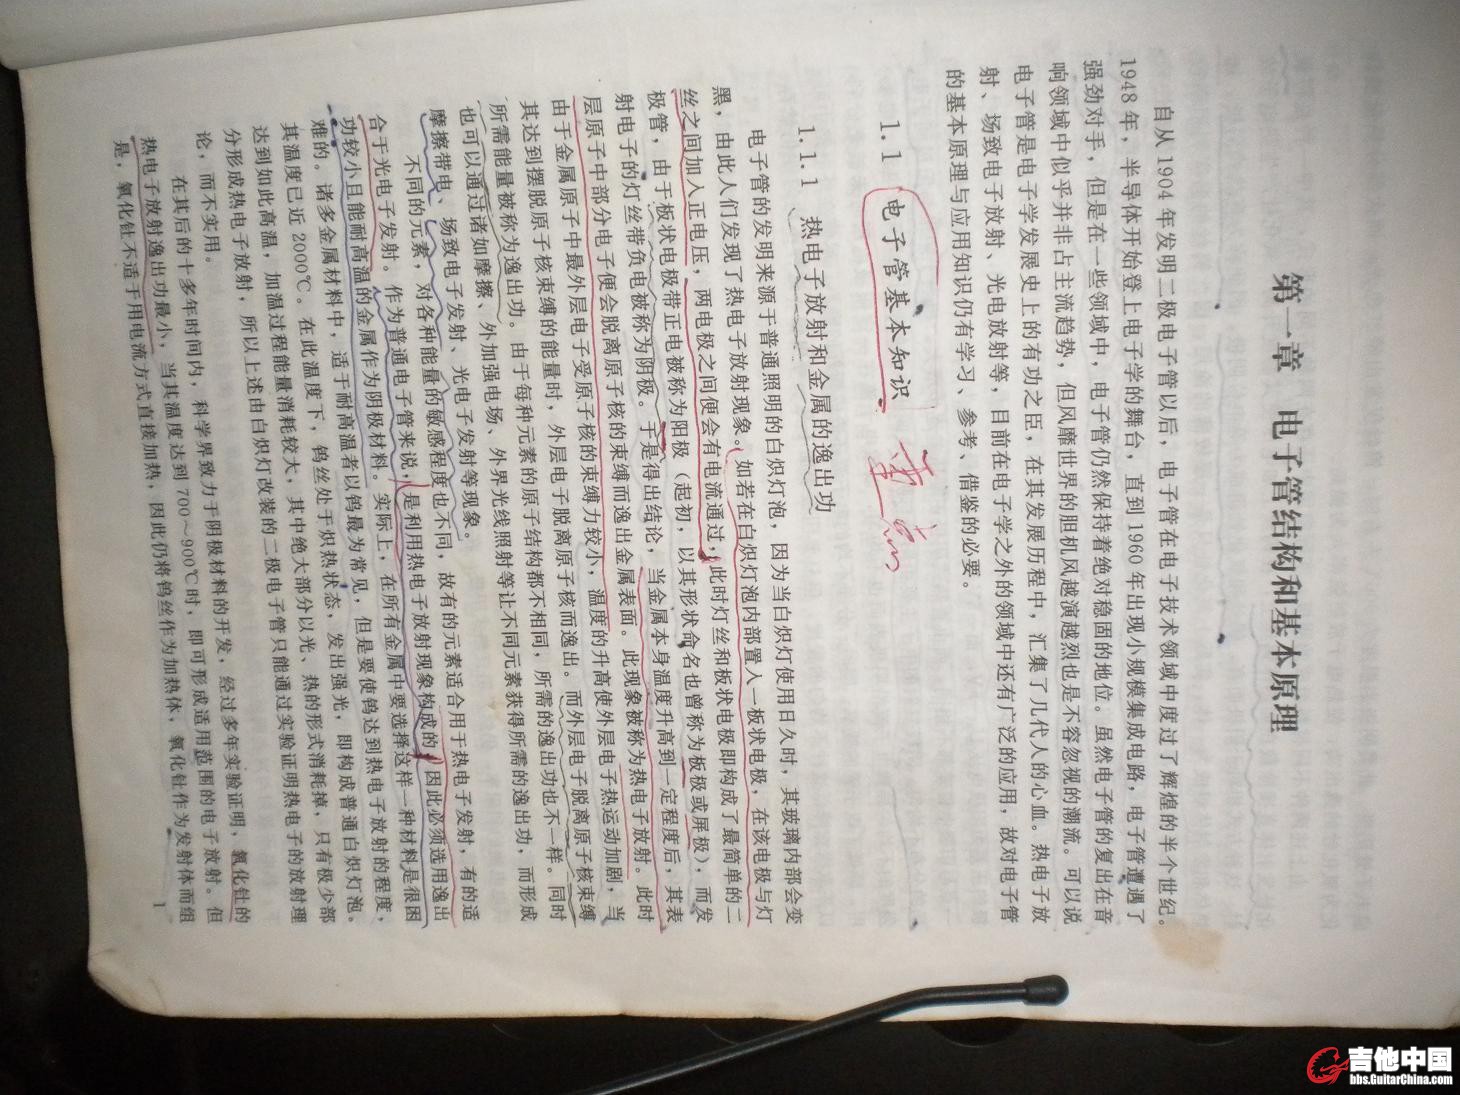 第一章 电子管结构和基本原理
自从 1904 年发明二极电子管以后，电子管在电子技术领域中度过了辉煌的半个世纪。
1948 年，半导体开始登上电子学的舞台，直到 1960 年出现小规模集成电路，电子管遭遇了
强劲对手，但是在一些领域中，电子管仍然保持着绝对稳固的地位。虽然电子管的复出在音
响领域中似乎并非占主流趋势，但风靡世界的胆机风越演越烈也是不容忽视的潮流。可以说
电子管是电子学发展史上的有功之臣，在其发展历程中，汇集了几代人的心血。热电子放
射、场致电子放射、光电放射等，目前在电子学之外的领域中还有广泛的应用，故对电子管
的基本原理与应用知识仍有学习、参考、借鉴的必要。
1.1 电子管基本知识
1.1.1 热电子放射和金属的逸出功
电子管的发明来源于普通照明的白炽灯泡，因为当白炽灯使用日久时，其玻璃内部会变
黑，由此人们发现了热电子放射现象。如若在白炽灯泡内部置入一板状电极，在该电极与灯
丝之间加入正电压，两电极之间便会有电流通过，此时灯丝和板状电极即构成了最简单的二
极管，由于板状电极带正电被称为阳极（起初，以其形状命名也曾称为板极或屏极），而发
射电子的灯丝带负电被称为阴极。于是得出结论，当金属本身温度升高到一定程度后，其表
层原子中部分电子便会脱离原子核的束缚而逸出金属表面。此现象被称为热电子放射。此时
由于金属原子中最外层电子受原子核的束缚力较小，温度的升高使外层电子热运动加剧，当
其达到摆脱原子核束缚的能量时，外层电子脱离原子核而逸出。而外层电子脱离原子核束缚
所需能量被称为逸出功。由于每种元素的原子结构都不相同，所需的逸出功也不一样。同时
也可以通过诸如摩擦、外加强电场、外界光线照射等让不同元素获得所需的逸出功，而形成
摩擦带电、场致电子发射、光电子发射等现象。
不同的元素，对各种能量的敏感程度也不同，故有的元素适合用于热电子发射，有的适
合于光电子发射。作为普通电子管来说，是利用热电子放射现象构成的，因此必须选用逸出
功较小且能耐高温的金属作为阴极材料。实际上，在所有金属中要选择这样一种材料是很困
难的。诸多金属材料中，适于耐高温者以钨最为常见，但是要使钨达到热电子放射的程度，
其温度已近 2000℃。在此温度下，钨丝处于炽热状态，发出强光，即构成普通白炽灯泡。
达到如此高温，加温过程能量消耗较大，其中绝大部分以光、热的形式消耗掉，只有极少部
分形成热电子放射，所以上述由白炽灯改装的二极电子管只能通过实验证明热电子的放射理
论，而不实用。
在其后的十多年时间内，科学界致力于阴极材料的开发，经过多年实验证明，氧化钍的
热电子放射逸出功最小，当其温度达到 700～900℃时，即可形成适用范围的电子放射。但
是，氧化钍不适于用电流方式直接加热，因此仍将钨丝作为加热体，氧化钍作为发射体而组
1
吉他中国
bbs.GuitarChina.com